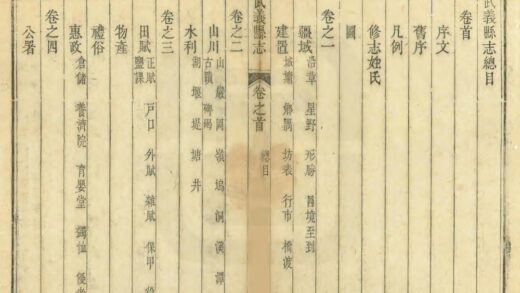 武義縣志總目
卷首
序文
舊序
凡例
修志姓氏
圖
卷之一
疆域 沿革 星野 形勝 境至到
建置 城墉 坊表 行市 橋渡
卷之首 總目
卷之二
山川 山 巖 岡 嶺 塢 洞 溪 潭
古蹟 碑碣
水利 湖 堰 堤 塘 井
卷之三
田賦 正賦 戶口 外賦 雜賦 保甲
鹽課
物產
禮俗
惠政 倉儲 養濟院 育嬰堂 蠲恤 優
卷之四
公署